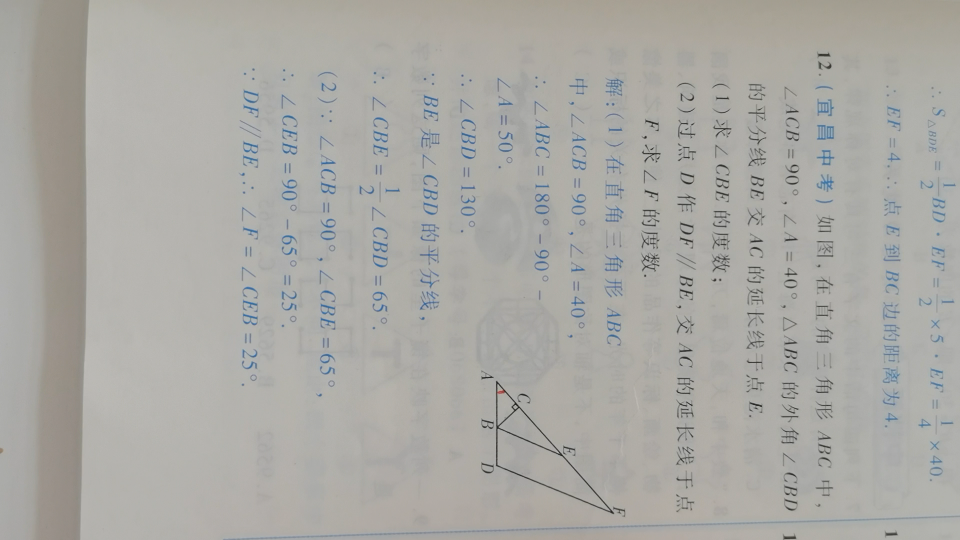 ∴ S△BDE=1/2BD·EF=1/2×5·EF=1/4×40.
∴ EF=4.∴点E到BC边的距离为4.
12.(宜昌中考)如图,在直角三角形ABC中,
∠ACB=90°,∠A=40°,△ABC的外角∠CBD
的平分线BE交AC的延长线于点E.
(1)求∠CBE的度数;
(2)过点D作DF∥BE,交AC的延长线于点
F,求∠F的度数.
解:(1)在直角三角形ABC
中,∠ACB=90°,∠A=40°,
∴ ∠ABC=180°-90°-
∠A=50°.
∴ ∠CBD=130°.
∵ BE是∠CBD的平分线,
∴ ∠CBE=1/2∠CBD=65°.
(2)∵ ∠ACB=90°,∠CBE=65°,
∴ ∠CEB=90°-65°=25°.
∵ DF∥BE,∴ ∠F=∠CEB=25°.
A
B
D
C
E
F
1
1